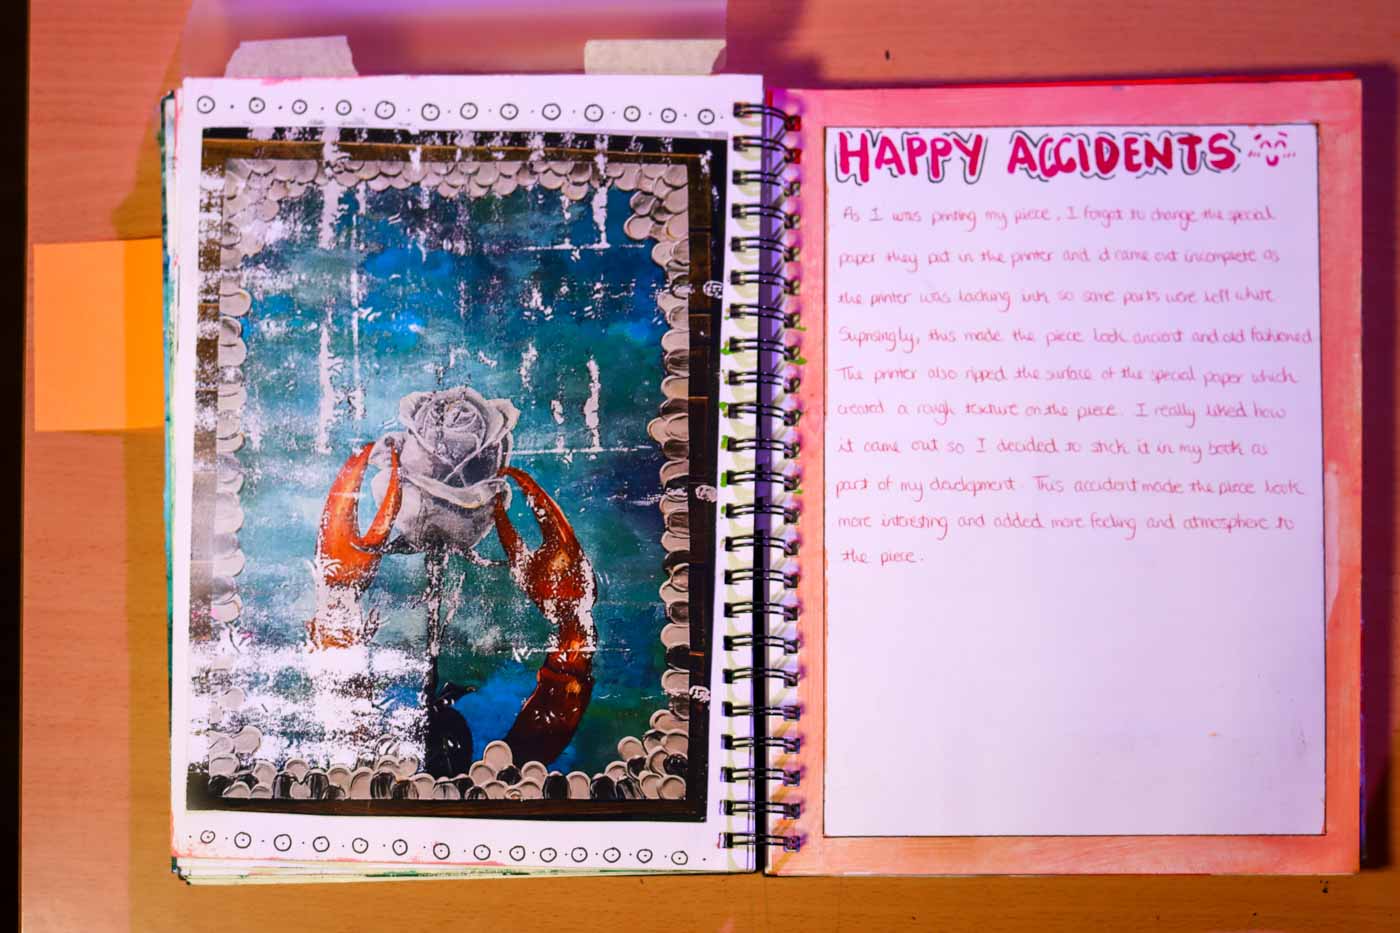 HAPPY ACCIDENTS
As I was printing my piece, I forgot to change the special
paper they put in the printer and it came out incomplete as
the printer was lacking ink so some parts were left white.
Suprisingly, this made the piece look ancient and old fashioned.
The printer also ripped the surface of the special paper which
created a rough texture on the piece. I really liked how
it came out so I decided to stick it in my book as
part of my development. This accident made the piece look
more interesting and added more feeling and atmosphere to
the piece.